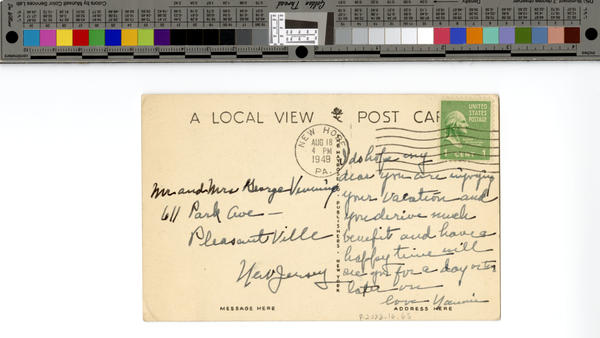 A LOCAL VIEW POST CAR
NEW HOPE
AUG 18
4 PM
1949
PA.
UNITED STATES POSTAGE
1 CENT 1
Mr and Mrs George
611 Park Ave —
Pleasantville
New Jersey
I do hope my
dear you are enjoying
your vacation and
you derive much
benefit and have a
happy time will
see you for a day or so
later on
love
PUBLISHERS NEW YORK
MESSAGE HERE
ADDRESS HERE